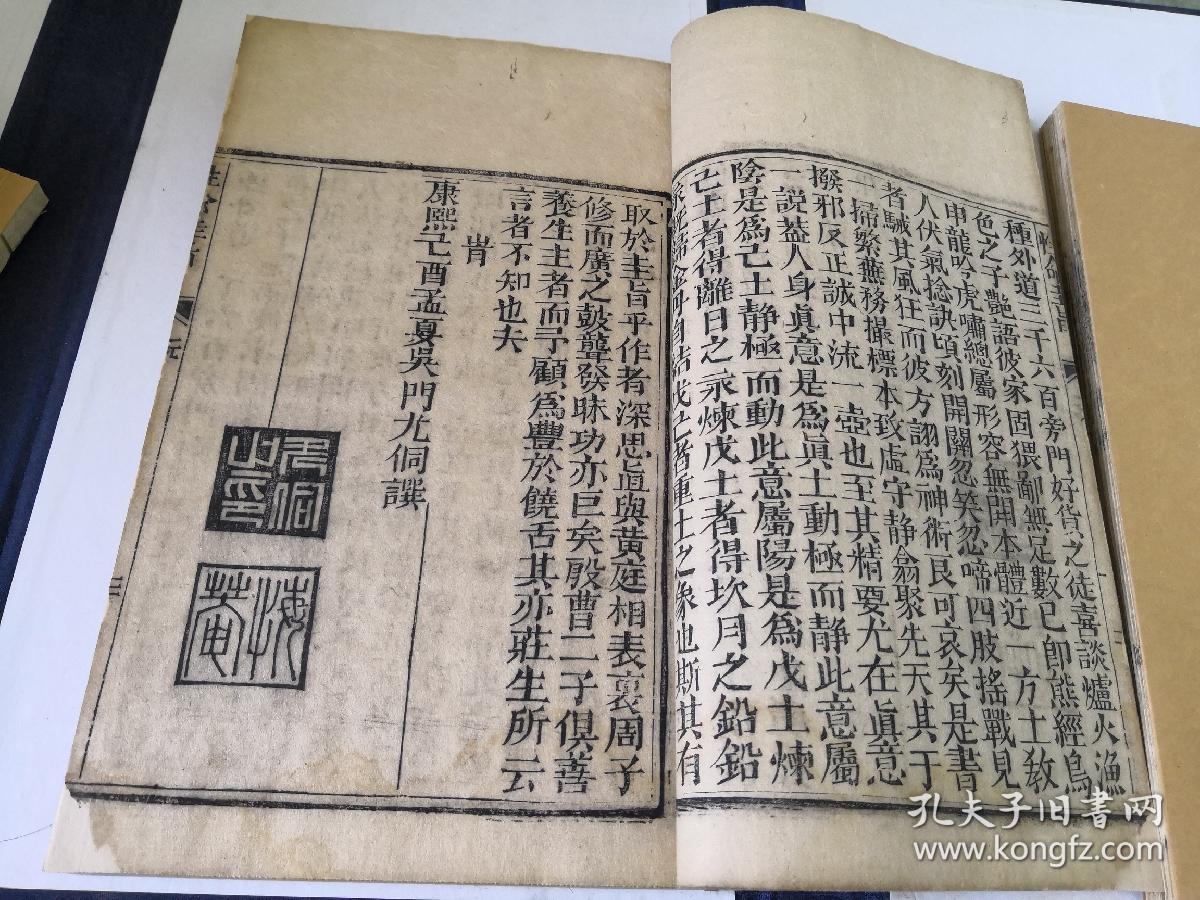 種外道三千六百旁門好貨之徒喜談爐火漁
色之子艷語彼家固猥鄙無足數已卽熊經鳥
申龍吟虎嘯總屬形容無關本體近一方士敎
人伏氣捻訣頃刻開關忽笑忽啼四肢搖戰見
者駴其風狂而彼方詡爲神術良可哀矣是書
一掃繁蕪務撮標本致虛守靜翕聚先天其于
撥邪反正誠中流一壺也至其精要尤在眞意
一說葢人身眞意是爲眞土動極而静此意屬
陰是爲己土静極而動此意屬陽是爲戊土煉
己土者得離日之汞煉戊土者得坎月之鉛鉛
金丹自結戊己者重土之象也斯其有
取於圭旨乎作者深思眞與黃庭相表裏周子
修而廣之鼓聾發昧功亦巨矣殷曹二子俱善
養生主者而予顧爲豐於饒舌其亦莊生所云
言者不知也夫
旹
康熙己酉孟夏吳門尤侗譔
尤侗之印
悔菴
性命圭旨
元
孔夫子旧书网
www.kongfz.com